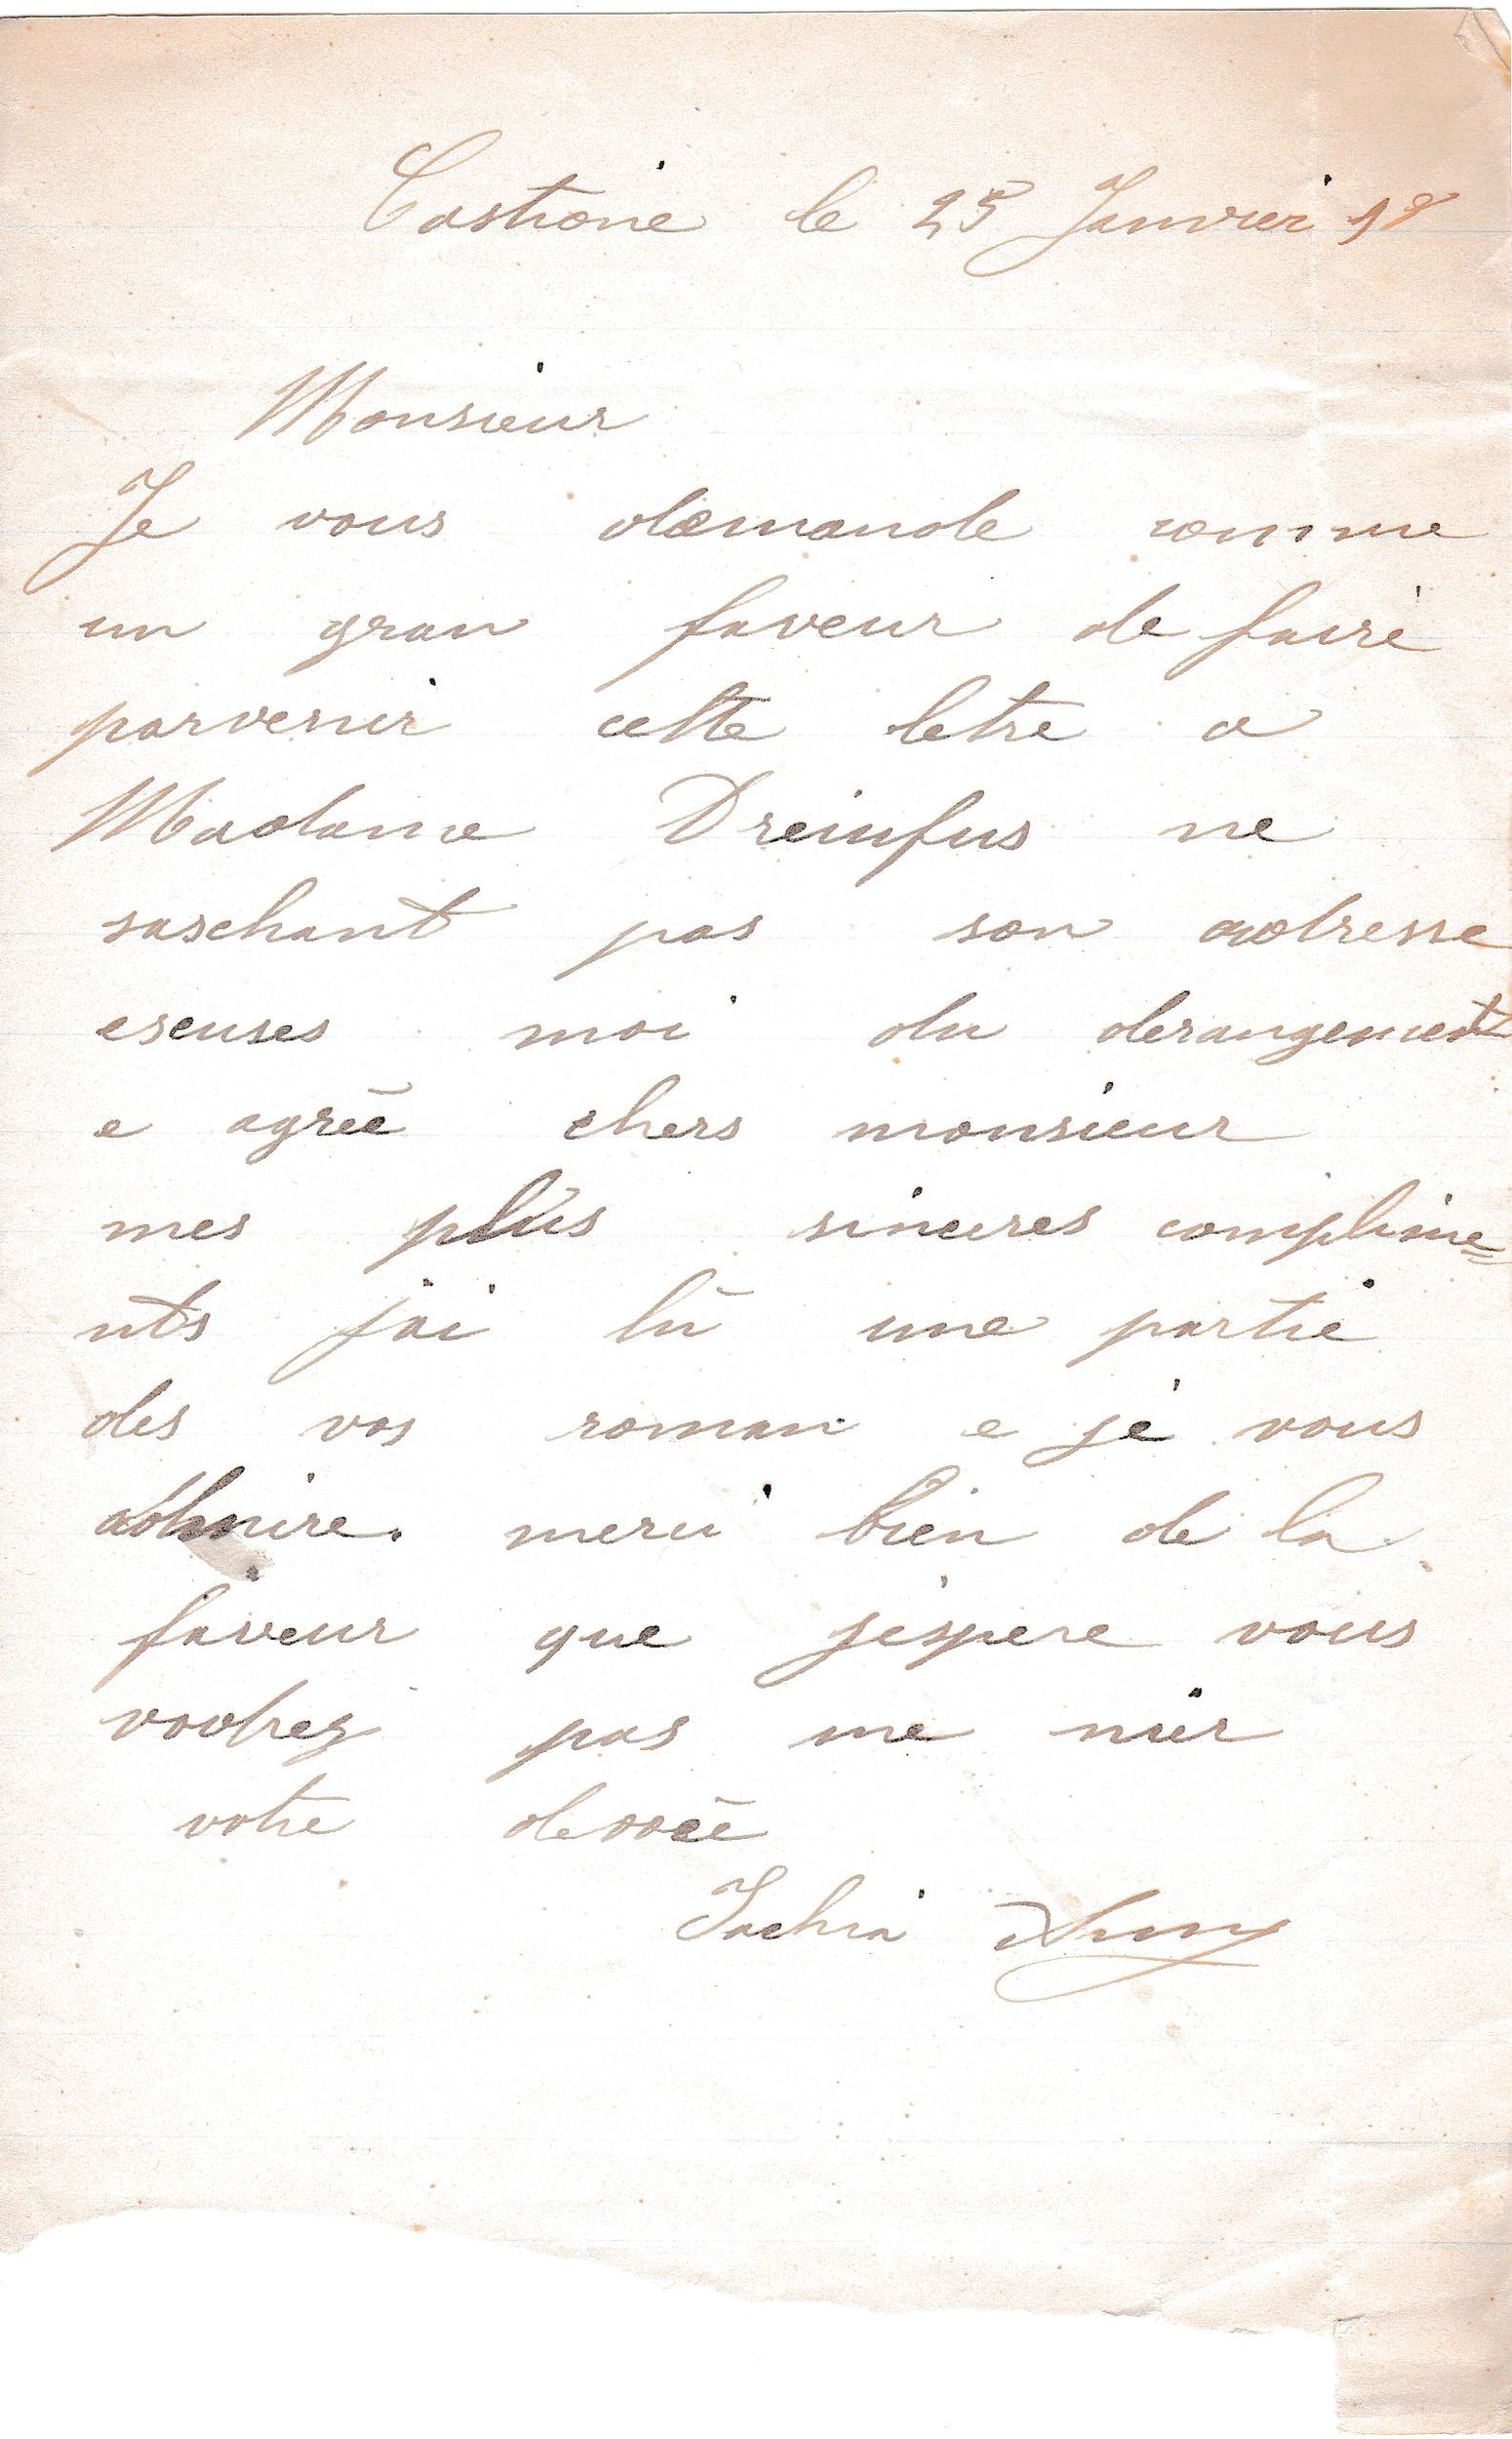 Castione le 25 Janvier 98
Monsieur
Je vous demande comme
un gran faveur de faire
parvenir cette letre a
Madame Dreiufus ne
saschant pas son adresse
escuses moi du derangement
e agréé chers monsieur
mes plus sinceres complime=
nts j'ai lû une partie
des vos roman e je vous
admire. merci bien de la
faveur que j'espere vous
vodrez pas me nier
votre devoée
Jachia